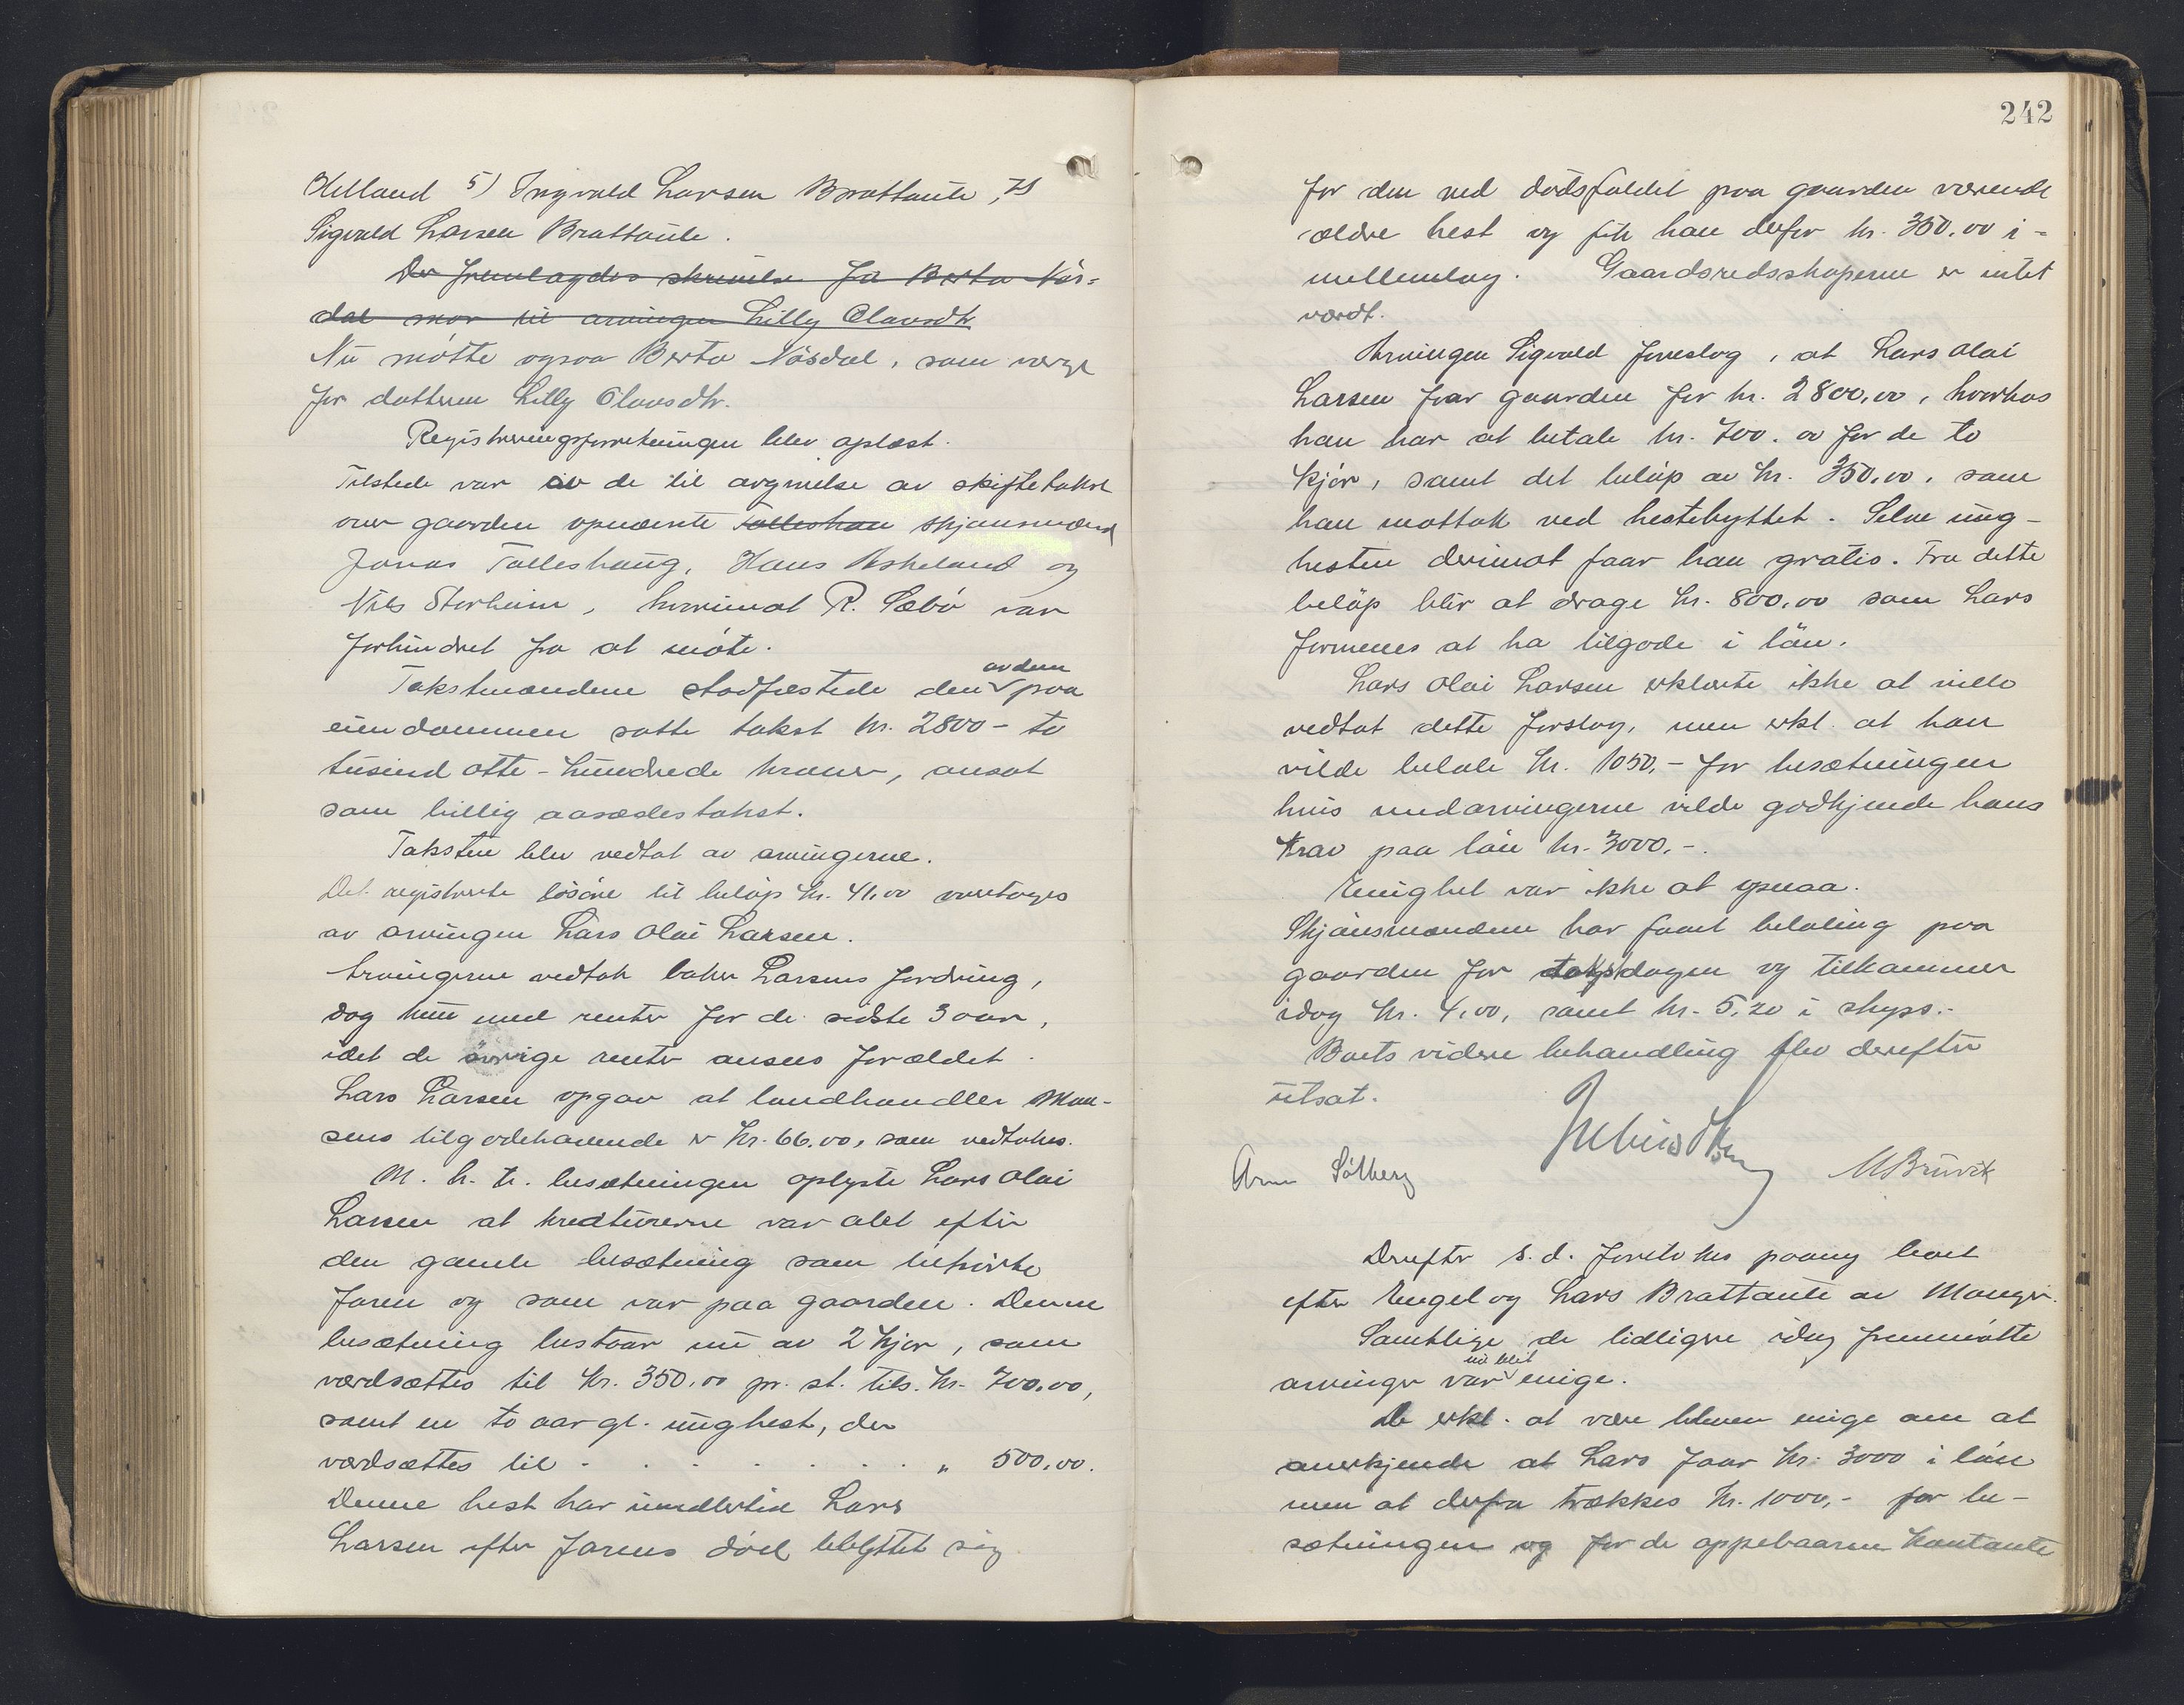 Helland 5) Ingvald Larsen Brattaule, 7)
Sigvald Larsen Brattaule.
Der fremlagdes skrivelse fra Berta Nös-
dal mor til arvingen Lilly Olavsdtr
Nu mötte ogsaa Berta Nösdal, som verge
for datteren Lilly Olavsdtr.
Registreringsforretningen blev oplæst.
Tilstede var av de til avgivelse av skiftetakst
over gaarden opnævnte Talleshau skjönsmænd
Jonas Talleshaug, Hans Askeland og
Nils Storheim, hvorimot R. Sæbö var
forhindret fra at möte.
Takstmændene stadfæstede den av dem paa
eiendommen satte takst kr. 2800 - to
tusind otte-hundrede kroner, ansat
som billig aasædestakst.
Taksten blev vedtat av arvingerne.
Det registrerte lösöre til beløp kr. 41.00 overtoges
av arvingen Lars Olai Larsen.
Arvingerne vedtok baker Larsens fordring,
dog kun med renter for de sidste 3 aar,
idet de övrige renter ansees forældet.
Lars Larsen opgav at landhandler Mon-
sens tilgodehavende er kr. 66.00, som vedtokes.
M. h. t. besætningen oplyste Lars Olai
Larsen at kreaturerne var alet efter
den gamle besætning som tilhörte
faren og som var paa gaarden. Denne
besætning bestaar nu av 2 kjör, som
værdsættes til kr. 350.00 pr. st. tils. kr. 700.00,
samt en to aar gl. unghest, der
værdsættes til - . . . . . . . " 500.00.
Denne hest har imidlertid Lars
Larsen efter farens död tilbyttet sig
242
for den ved dödsfaldet paa gaarden værende
ældre hest og fik han derfor kr. 350.00 i-
mellemlag. Gaardsredskaperne er intet
værdt.
Arvingen Sigvald foreslog, at Lars Olai
Larsen faar gaarden for kr. 2800.00, hvorhos
han har at betale kr. 700.00 for de to
kjör, samt det belöp av kr. 350.00, som
han mottok ved hestebyttet. Selve ung-
hesten derimot faar han gratis. Fra dette
belöp blir at drage kr. 800.00 som Lars
formenes at ha tilgode i lön.
Lars Olai Larsen erklærte ikke at ville
vedtat dette forslag, men erkl. at han
vilde betale kr. 1050,- for besætningen
hvis medarvingerne vilde godkjende hans
krav paa lön kr. 3000.-.
Enighet var ikke at opnaa.
Skjönsmændene har faaet betaling paa
gaarden for takstdagen og tilkommer
idag kr. 4.00, samt kr. 5.20 i skyss.-
Boets videre behandling blev derefter
utsat.
Arne Solberg M Bruvik
Derefter s.d. foretokes paany boet
efter Engel og Lars Brattaule av Manger.
Samtlige de tidligere idag fremmötte
arvinger var nu blit enige.
De erkl. at være bleven enige om at
anerkjende at Lars faar kr. 3000 i lön
men at derfra trækkes kr. 1000,- for be-
sætningen og for de oppebaarne kontante